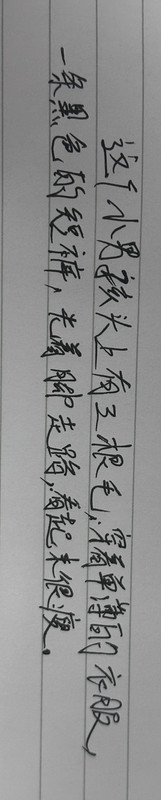 这个小男孩头上有三根毛，穿着单薄的衣服，
一条黑色的短裤，光着脚走路，看起来很瘦。